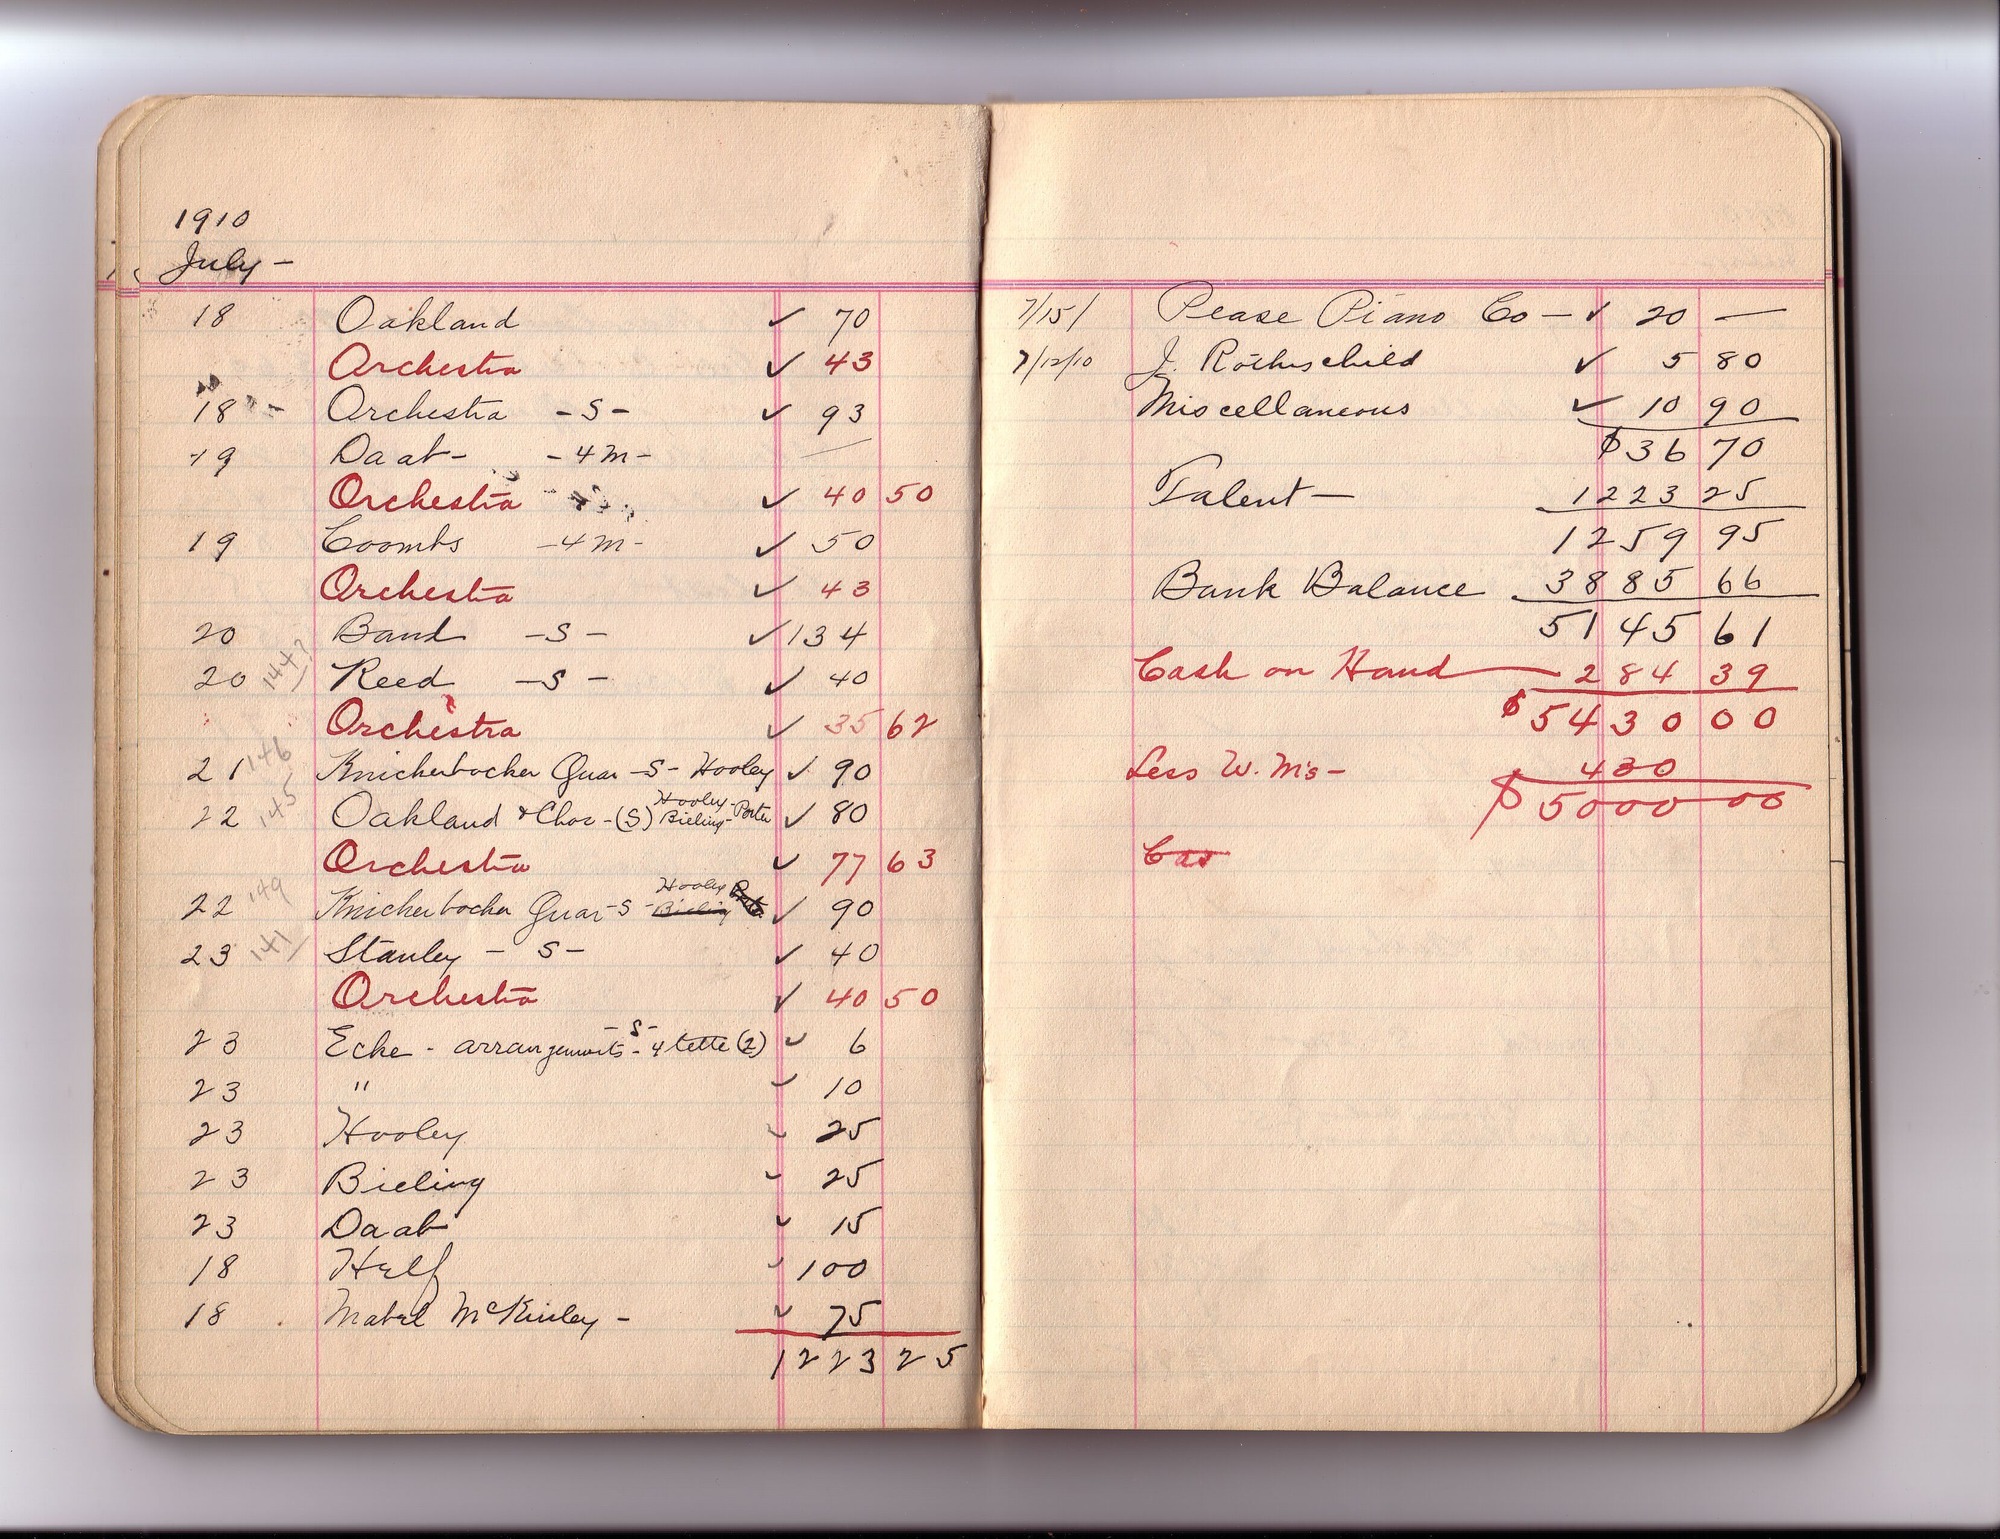 1910
July -
18 Oakland ✓ 70
Orchestra ✓ 43
18 - Orchestra - S - ✓ 93
19 Daab - - 4 M - —
Orchestra ✓ 40 50
19 Coombs - 4 M - ✓ 50
Orchestra ✓ 43
20 Band - S - ✓ 134
20 144? Reed - S - ✓ 40
Orchestra ✓ 35 62
21 146 Knickerbocker Quar - S - Hooley ✓ 90
22 145 Oakland & Chor - (S) Hooley - Bieling - Porter ✓ 80
Orchestra ✓ 77 63
22 149 Knickerbocker Quar - S - Hooley Bieling ✓ 90
23 141 Stanley - S - ✓ 40
Orchestra ✓ 40 50
23 Ecke - arrangements - S - 4 tette (2) ✓ 6
23 " ✓ 10
23 Hooley ✓ 25
23 Bieling ✓ 25
23 Daab ✓ 15
18 Helf ✓ 100
18 Mabel McKinley - ✓ 75
1223 25
7/15/ Pease Piano Co - ✓ 20 —
7/12/10 J. Rothschild ✓ 5 80
Miscellaneous ✓ 10 90
$36 70
Talent - 1223 25
1259 95
Bank Balance 3885 66
5145 61
Cash on Hand — 284 39
$5430 00
Less W. M's - 430
$5000 00
Cas